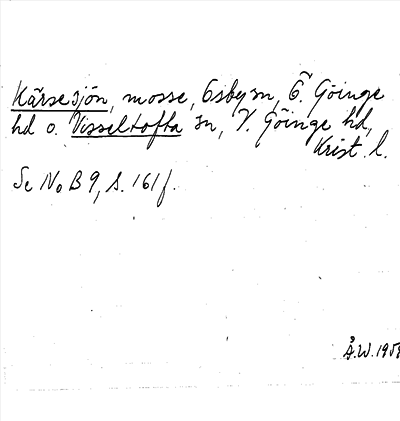 Kärsesjön, mosse, Osby sn, Ö. Göinge
hd o. Visseltofta sn, V. Göinge hd,
Krist. l.
Se No B 9, s. 161 f.
Å.W. 1958